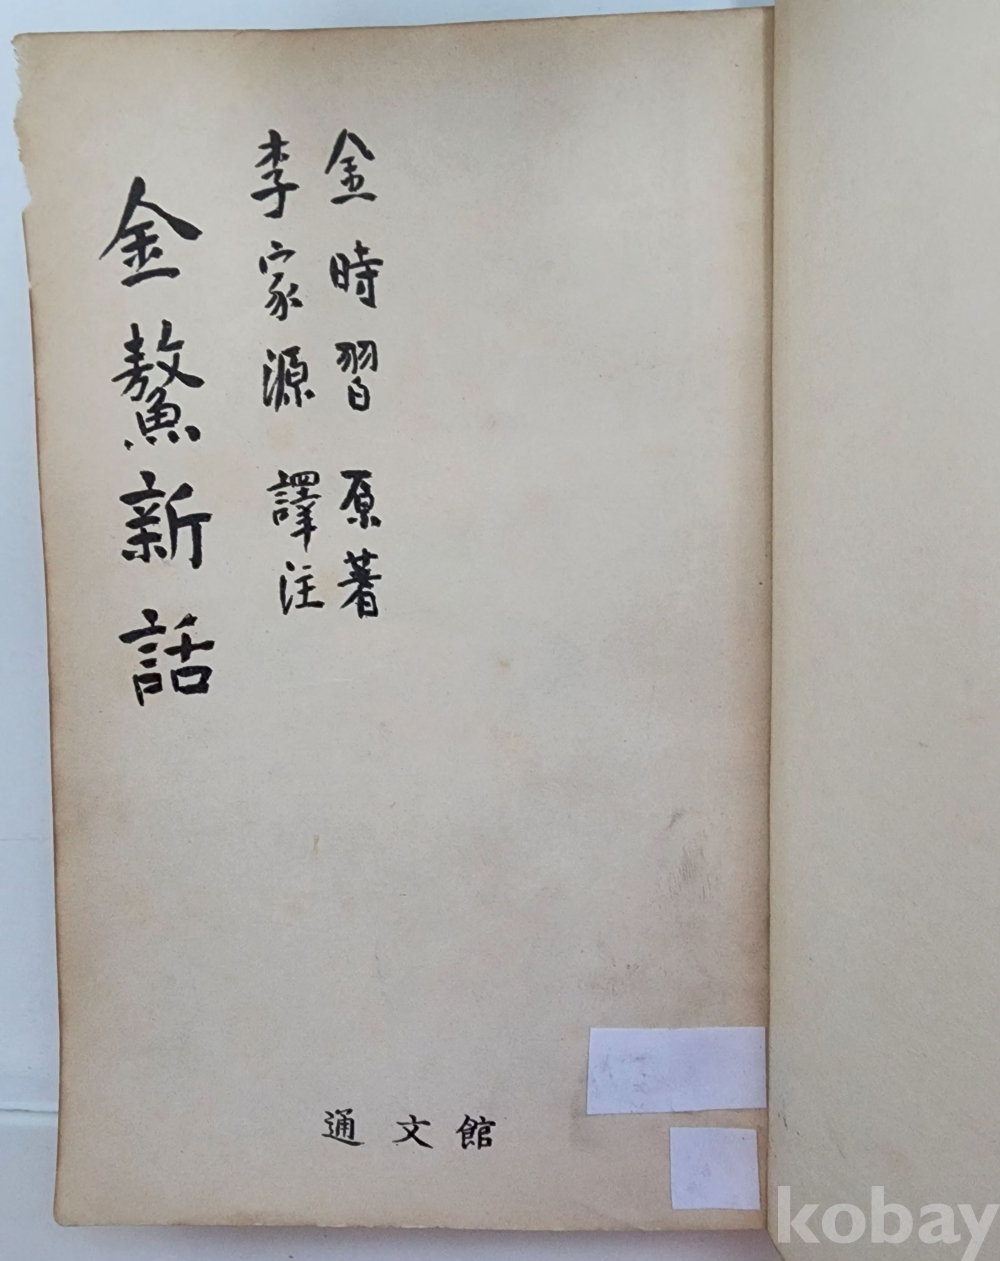 金時習 原著
李家源 譯注
金鰲新話
通文館
kobay